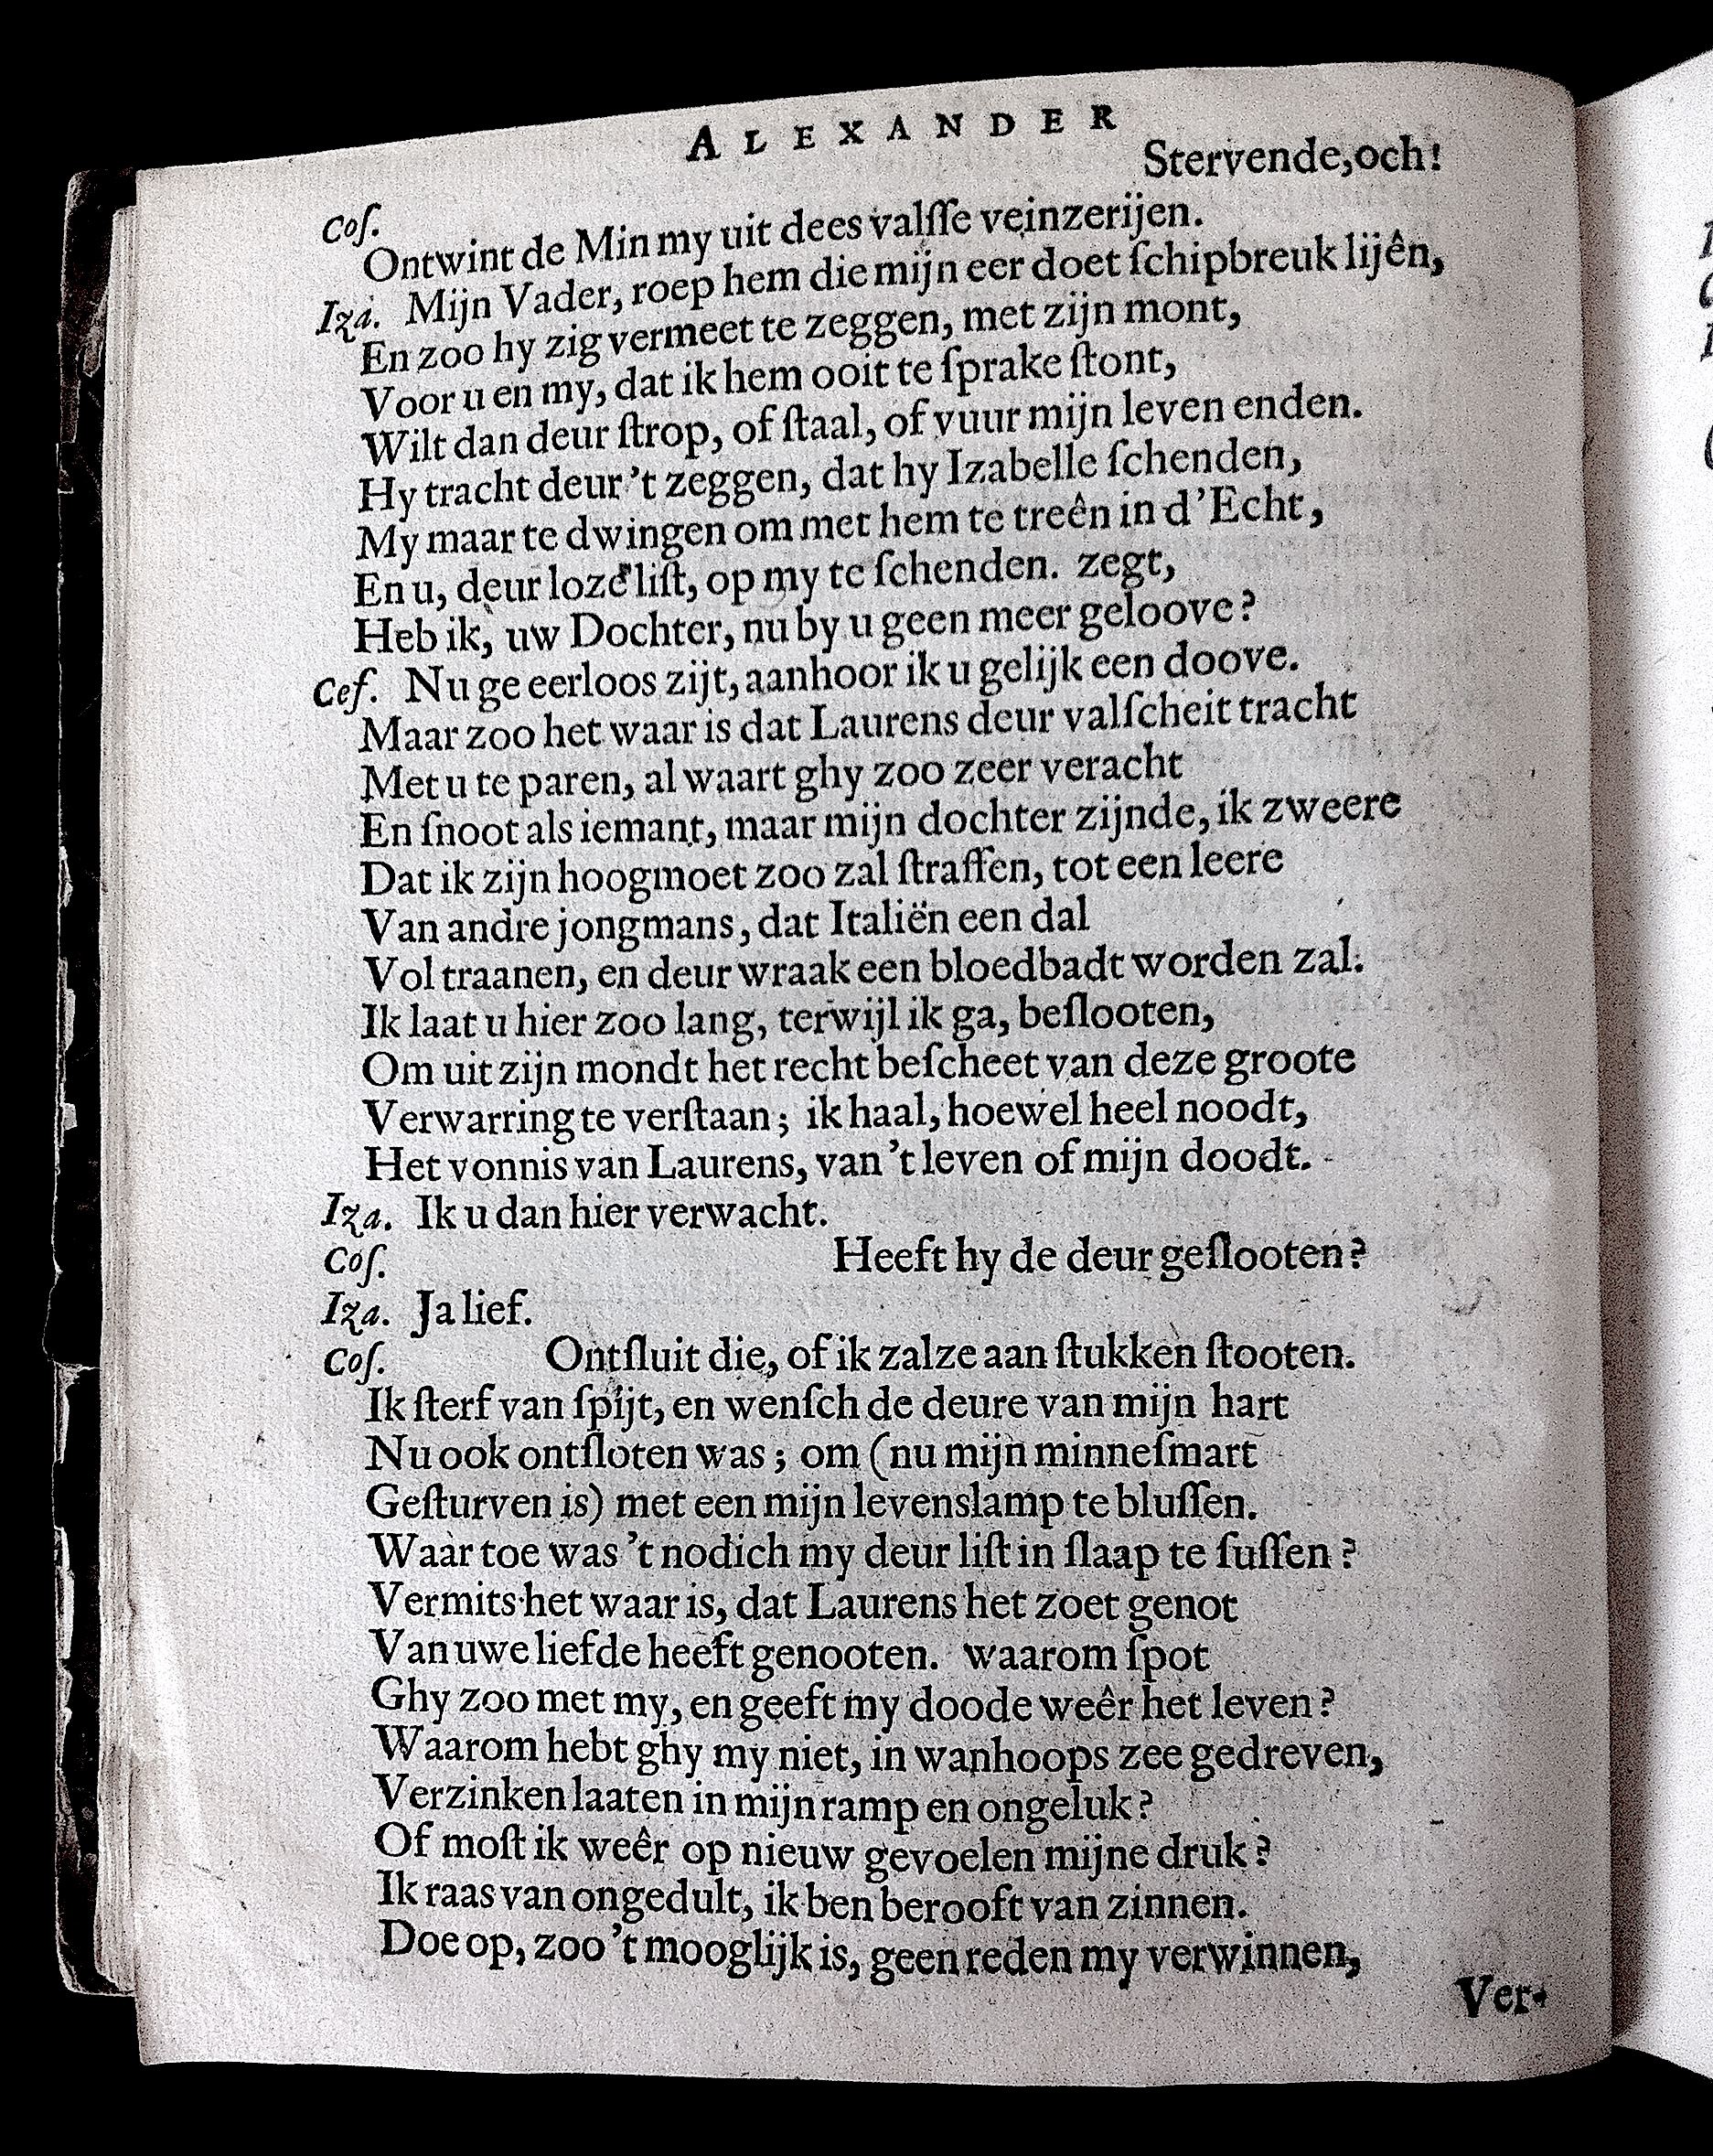 ALEXANDER
Stervende, och!
Coſ.
Ontwint de Min my uit dees valſſe veinzerijen.
Iza. Mijn Vader, roep hem die mijn eer doet ſchipbreuk lijên,
En zoo hy zig vermeet te zeggen, met zijn mont,
Voor u en my, dat ik hem ooit te ſprake ſtont,
Wilt dan deur ſtrop, of ſtaal, of vuur mijn leven enden.
Hy tracht deur 't zeggen, dat hy Izabelle ſchenden,
My maar te dwingen om met hem te treên in d'Echt,
En u, deur loze liſt, op my te ſchenden. zegt,
Heb ik, uw Dochter, nu by u geen meer geloove?
Ceſ. Nu ge eerloos zijt, aanhoor ik u gelijk een doove.
Maar zoo het waar is dat Laurens deur valſcheit tracht
Met u te paren, al waart ghy zoo zeer veracht
En ſnoot als iemant, maar mijn dochter zijnde, ik zweere
Dat ik zijn hoogmoet zoo zal ſtraffen, tot een leere
Van andre jongmans, dat Italiën een dal
Vol traanen, en deur wraak een bloedbadt worden zal.
Ik laat u hier zoo lang, terwijl ik ga, beſlooten,
Om uit zijn mondt het recht beſcheet van deze groote
Verwarring te verſtaan; ik haal, hoewel heel noodt,
Het vonnis van Laurens, van 't leven of mijn doodt.
Iza. Ik u dan hier verwacht.
Coſ. Heeft hy de deur geſlooten?
Iza. Ja lief.
Coſ. Ontſluit die, of ik zalze aan ſtukken ſtooten.
Ik ſterf van ſpijt, en wenſch de deure van mijn hart
Nu ook ontſloten was; om (nu mijn minneſmart
Geſturven is) met een mijn levenslamp te bluſſen.
Waar toe was 't nodich my deur liſt in ſlaap te ſuſſen?
Vermits het waar is, dat Laurens het zoet genot
Van uwe liefde heeft genooten. waarom ſpot
Ghy zoo met my, en geeft my doode weêr het leven?
Waarom hebt ghy my niet, in wanhoops zee gedreven,
Verzinken laaten in mijn ramp en ongeluk?
Of moſt ik weêr op nieuw gevoelen mijne druk?
Ik raas van ongedult, ik ben berooft van zinnen.
Doe op, zoo 't mooglijk is, geen reden my verwinnen,
Ver-